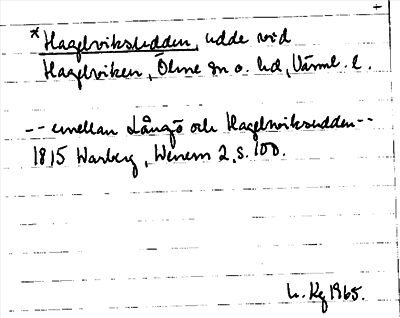 +
*Hagelviksudden, udde vid
Hagelviken, Ölme sn o. hd, Värml. l.
-- emellan Långö och Hagelwiksudden--
1815 Warberg, Wenern 2, s. 100.
1965.